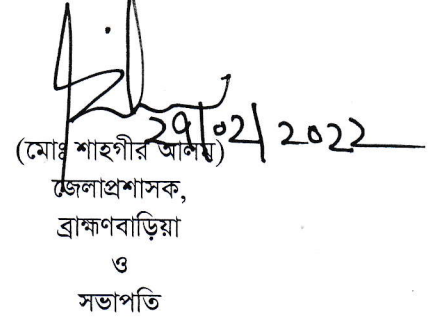 ২৭/০২/২০২২
(মোঃ শাহগীর আলম)
জেলাপ্রশাসক,
ব্রাহ্মণবাড়িয়া
ও
সভাপতি